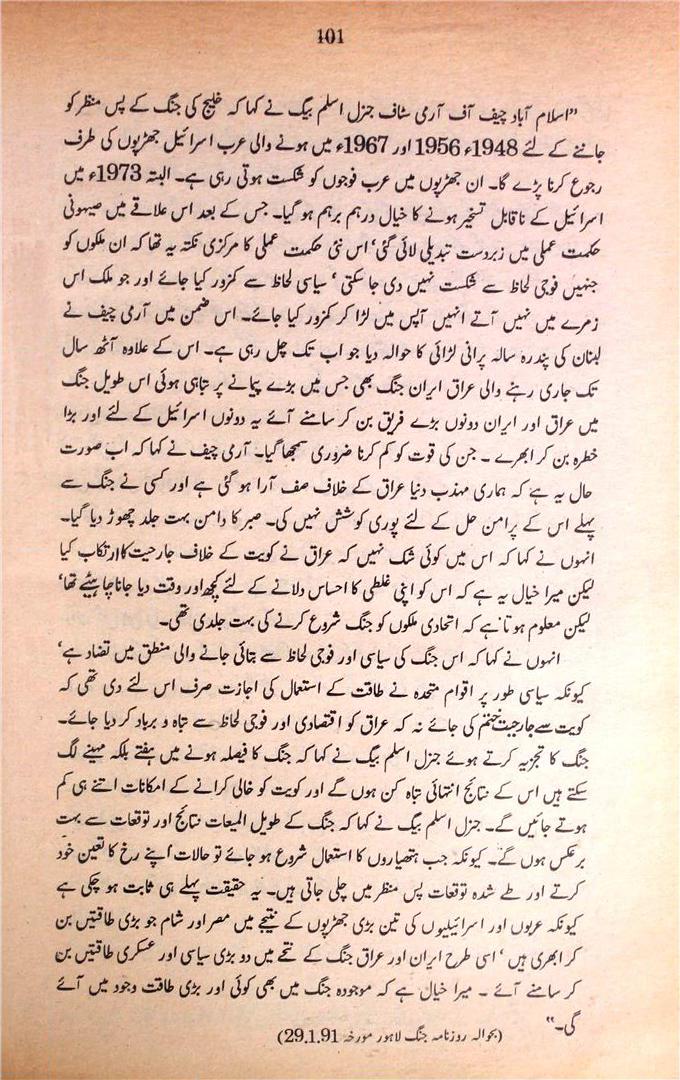 101
”اسلام آباد چیف آف آرمی سٹاف جنرل اسلم بیگ نے کہا کہ خلیج کی جنگ کے پس منظر کو
جاننے کے لئے 1948ء 1956 اور 1967ء میں ہونے والی عرب اسرائیل جھڑپوں کی طرف
رجوع کرنا پڑے گا۔ ان جھڑپوں میں عرب فوجوں کو شکست ہوتی رہی ہے۔ البتہ 1973ء میں
اسرائیل کے ناقابل تسخیر ہونے کا خیال درہم برہم ہو گیا۔ جس کے بعد اس علاقے میں صیہونی
حکمت عملی میں زبردست تبدیلی لائی گئی‘ اس نئی حکمت عملی کا مرکزی نکتہ یہ تھا کہ ان ملکوں کو
جنہیں فوجی لحاظ سے شکست نہیں دی جا سکتی ‘ سیاسی لحاظ سے کمزور کیا جائے اور جو ملک اس
زمرے میں نہیں آتے انہیں آپس میں لڑا کر کمزور کیا جائے۔ اس ضمن میں آرمی چیف نے
لبنان کی پندرہ سالہ پرانی لڑائی کا حوالہ دیا جو اب تک چل رہی ہے۔ اس کے علاوہ آٹھ سال
تک جاری رہنے والی عراق ایران جنگ بھی جس میں بڑے پیمانے پر تباہی ہوئی اس طویل جنگ
میں عراق اور ایران دونوں بڑے فریق بن کر سامنے آئے یہ دونوں اسرائیل کے لئے اور بڑا
خطرہ بن کر ابھرے ۔ جن کی قوت کو کم کرنا ضروری سمجھا گیا۔ آرمی چیف نے کہا کہ اب صورت
حال یہ ہے کہ ہماری مہذب دنیا عراق کے خلاف صف آرا ہو گئی ہے اور کسی نے جنگ سے
پہلے اس کے پرامن حل کے لئے پوری کوشش نہیں کی۔ صبر کا دامن بہت جلد چھوڑ دیا گیا۔
انہوں نے کہا کہ اس میں کوئی شک نہیں کہ عراق نے کویت کے خلاف جارحیت کا ارتکاب کیا
لیکن میرا خیال یہ ہے کہ اس کو اپنی غلطی کا احساس دلانے کے لئے کچھ اور وقت دیا جانا چاہیئے تھا‘
لیکن معلوم ہوتا ہے کہ اتحادی ملکوں کو جنگ شروع کرنے کی بہت جلدی تھی۔
انہوں نے کہا کہ اس جنگ کی سیاسی اور فوجی لحاظ سے بتائی جانے والی منطق میں تضاد ہے‘
کیونکہ سیاسی طور پر اقوام متحدہ نے طاقت کے استعمال کی اجازت صرف اس لئے دی تھی کہ
کویت سے جارحیت ختم کی جائے نہ کہ عراق کو اقتصادی اور فوجی لحاظ سے تباہ و برباد کر دیا جائے۔
جنگ کا تجزیہ کرتے ہوئے جنرل اسلم بیگ نے کہا کہ جنگ کا فیصلہ ہونے میں ہفتے بلکہ مہینے لگ
سکتے ہیں اس کے نتائج انتہائی تباہ کن ہوں گے اور کویت کو خالی کرانے کے امکانات اتنے ہی کم
ہوتے جائیں گے۔ جنرل اسلم بیگ نے کہا کہ جنگ کے طویل المیعات نتائج اور توقعات سے بہت
برعکس ہوں گے۔ کیونکہ جب ہتھیاروں کا استعمال شروع ہو جائے تو حالات اپنے رخ کا تعین خود
کرتے اور طے شدہ توقعات پس منظر میں چلی جاتی ہیں۔ یہ حقیقت پہلے ہی ثابت ہو چکی ہے
کیونکہ عربوں اور اسرائیلیوں کی تین بڑی جھڑپوں کے نتیجے میں مصر اور شام جو بڑی طاقتیں بن
کر ابھری ہیں ‘ اسی طرح ایران اور عراق جنگ کے نتجے میں دو بڑی سیاسی اور عسکری طاقتیں بن
کر سامنے آئے ۔ میرا خیال ہے کہ موجودہ جنگ میں بھی کوئی اور بڑی طاقت وجود میں آئے
گی۔“
(بحوالہ روزنامہ جنگ لاہور مورخہ 29.1.91)